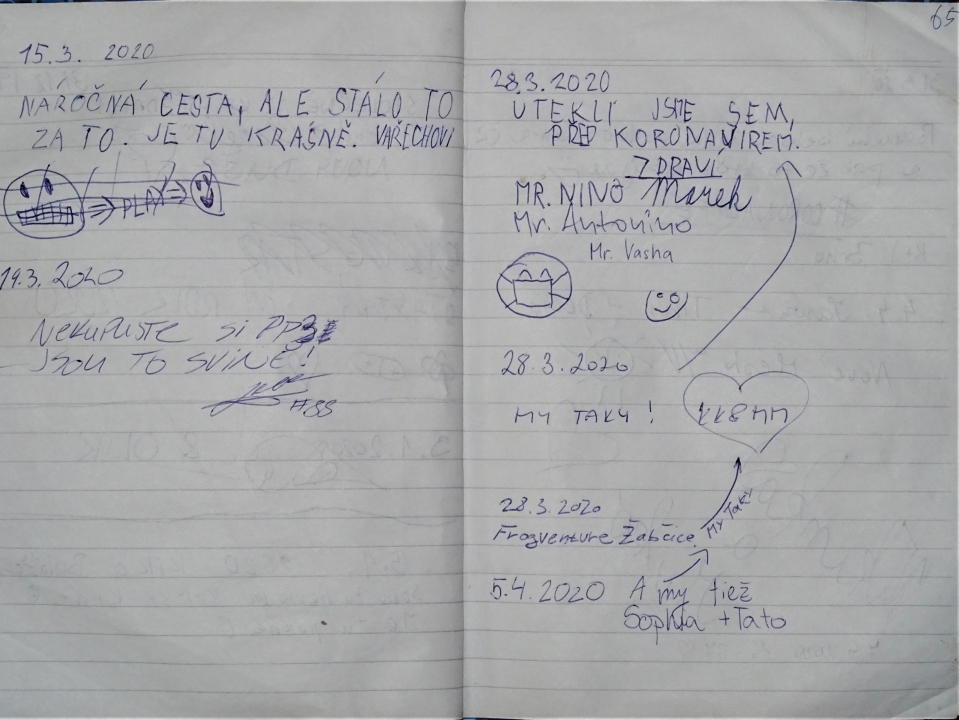 15.3. 2020
NÁROČNÁ CESTA, ALE STÁLO TO
ZA TO. JE TU KRÁSNĚ. VAŘECHOVI
⇒ PLAY ⇒
19.3. 2020
Nekupujte si
JSOU TO SVINĚ!
65
28.3.2020
UTEKLI JSME SEM,
PŘED KORONAVIREM.
ZDRAVÍ
MR. NINO Marek
Mr. Antonino
Mr. Vasha
28.3.2020
MY TAKY! KK&MM
28.3.2020
Frogventure Žabčice. My Také!
5.4.2020 A my tiež
Sophia + Tato